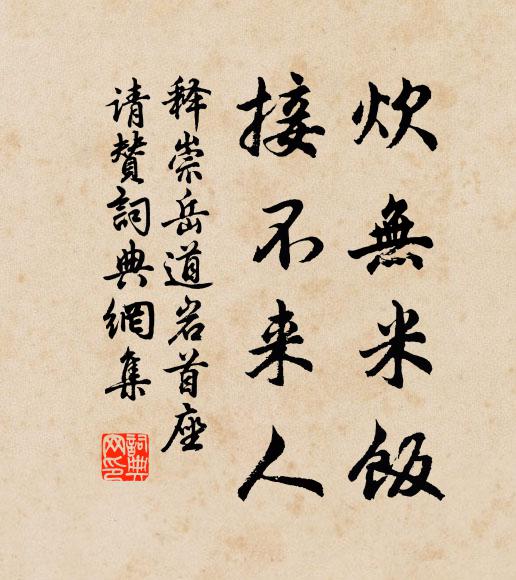 炊無米飯
接不来人
释崇岳道岩首座
请赞詞典網集
詞典
网印